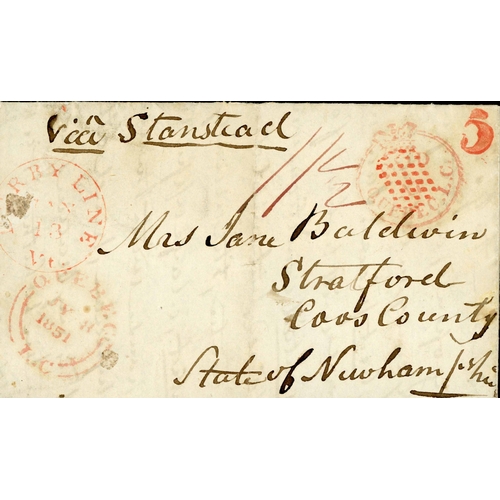 Via Stanstead
5
1/2
RBY LINE
13
Vt.
QUEBEC L.C.
Mrs Jane Baldwin
Stratford
Coos County
State of Newhampshire
1851
L.C